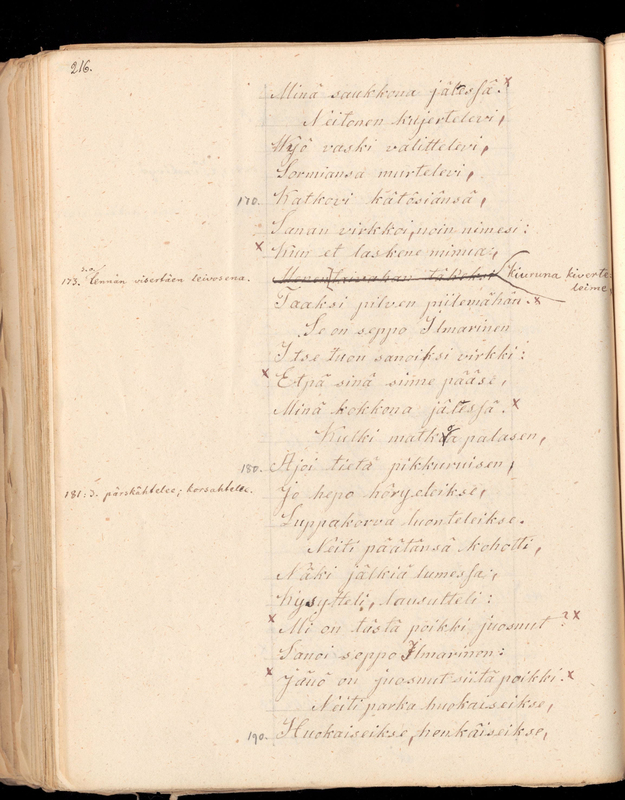 216.
Minä saukkona jälessä.x
Neitonen kujertelevi,
Wyö vaski välittelevi,
Sormiansa murtelevi,
170. Katkovi kätösiänsä,
Sanan virkkoi, noin nimesi:
x Kun et laskene minua,
173. s.o. Lennän visertäen leivosena.
kiuruna kiverte
leime
Taaksi pilven piilemähän.x
Se on seppo Ilmarinen
Itse tuon sanoiksi virkki:
x Etpä sinä sinne pääse,
Minä kokkona jälessä.x
Kulki matkoa palasen,
180. Ajoi tietä pikkuruisen,
181: d. pärskähtelee; korsahtelee.
Jo hepo höryeleikse,
Luppakorva luonteleikse.
Neiti päätänsä kohotti,
Näki jälkiä lumessa,
Kysytteli, lausutteli:
x Mi on tästä poikki juosnut?x
Sanoi seppo Ilmarinen:
x Jänö on juosnut siitä poikki.x
Neiti parka huokaiseikse,
190. Huokaiseikse, henkäiseikse,